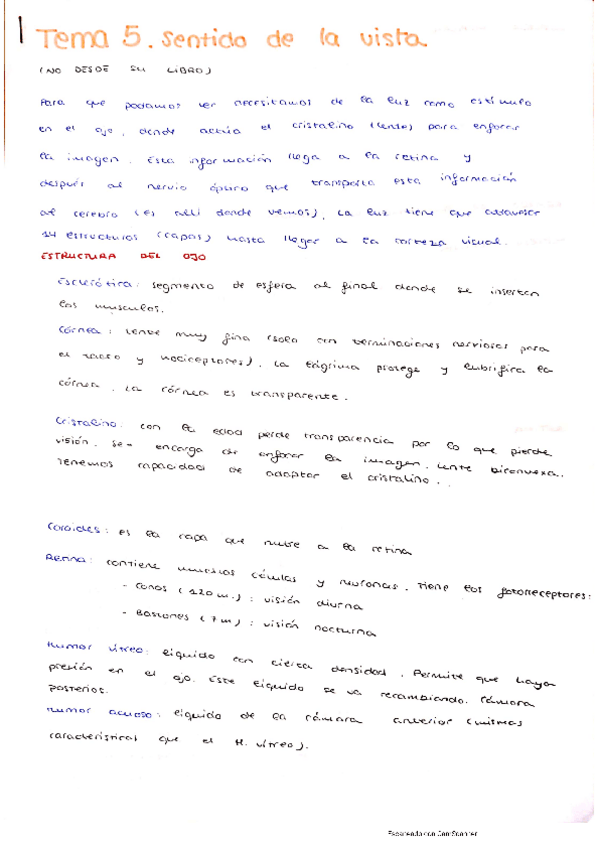 Tema 5. Sentido de la vista
(NO DESDE SU LIBRO)
Para que podamos ver necesitamos de la luz como estímulo
en el ojo, donde actúa el cristalino (lente) para enfocar
la imagen. Esta información llega a la retina y
después al nervio óptico que transporta esta información
al cerebro (es allí donde vemos). La luz tiene que atravesar
14 estructuras (capas) hasta llegar a la corteza visual.
ESTRUCTURA DEL OJO
Esclerótica: segmento de esfera al final donde se insertan
los musculos.
Córnea: lente muy fina (solo con terminaciones nerviosas para
el tacto y nociceptores). La lágrima protege y lubrifica la
córnea. La córnea es transparente.
Cristalino: con la edad pierde transparencia por lo que pierde
visión. Se encarga de enfocar la imagen. Lente biconvexa.
Tenemos capacidad de adaptar el cristalino.
Coroides: es la capa que nutre a la retina
Retina: contiene muchas células y neuronas. Tiene los fotorreceptores:
- Conos (120 m.): visión diurna
- Bastones (7m): visión nocturna
Humor vítreo: líquido con cierta densidad. Permite que haya
presión en el ojo. Este líquido se va recambiando. Cámara
posterior.
Humor acuoso: líquido de la cámara anterior (mismas
características que el H. vítreo).
Escaneado con CamScanner